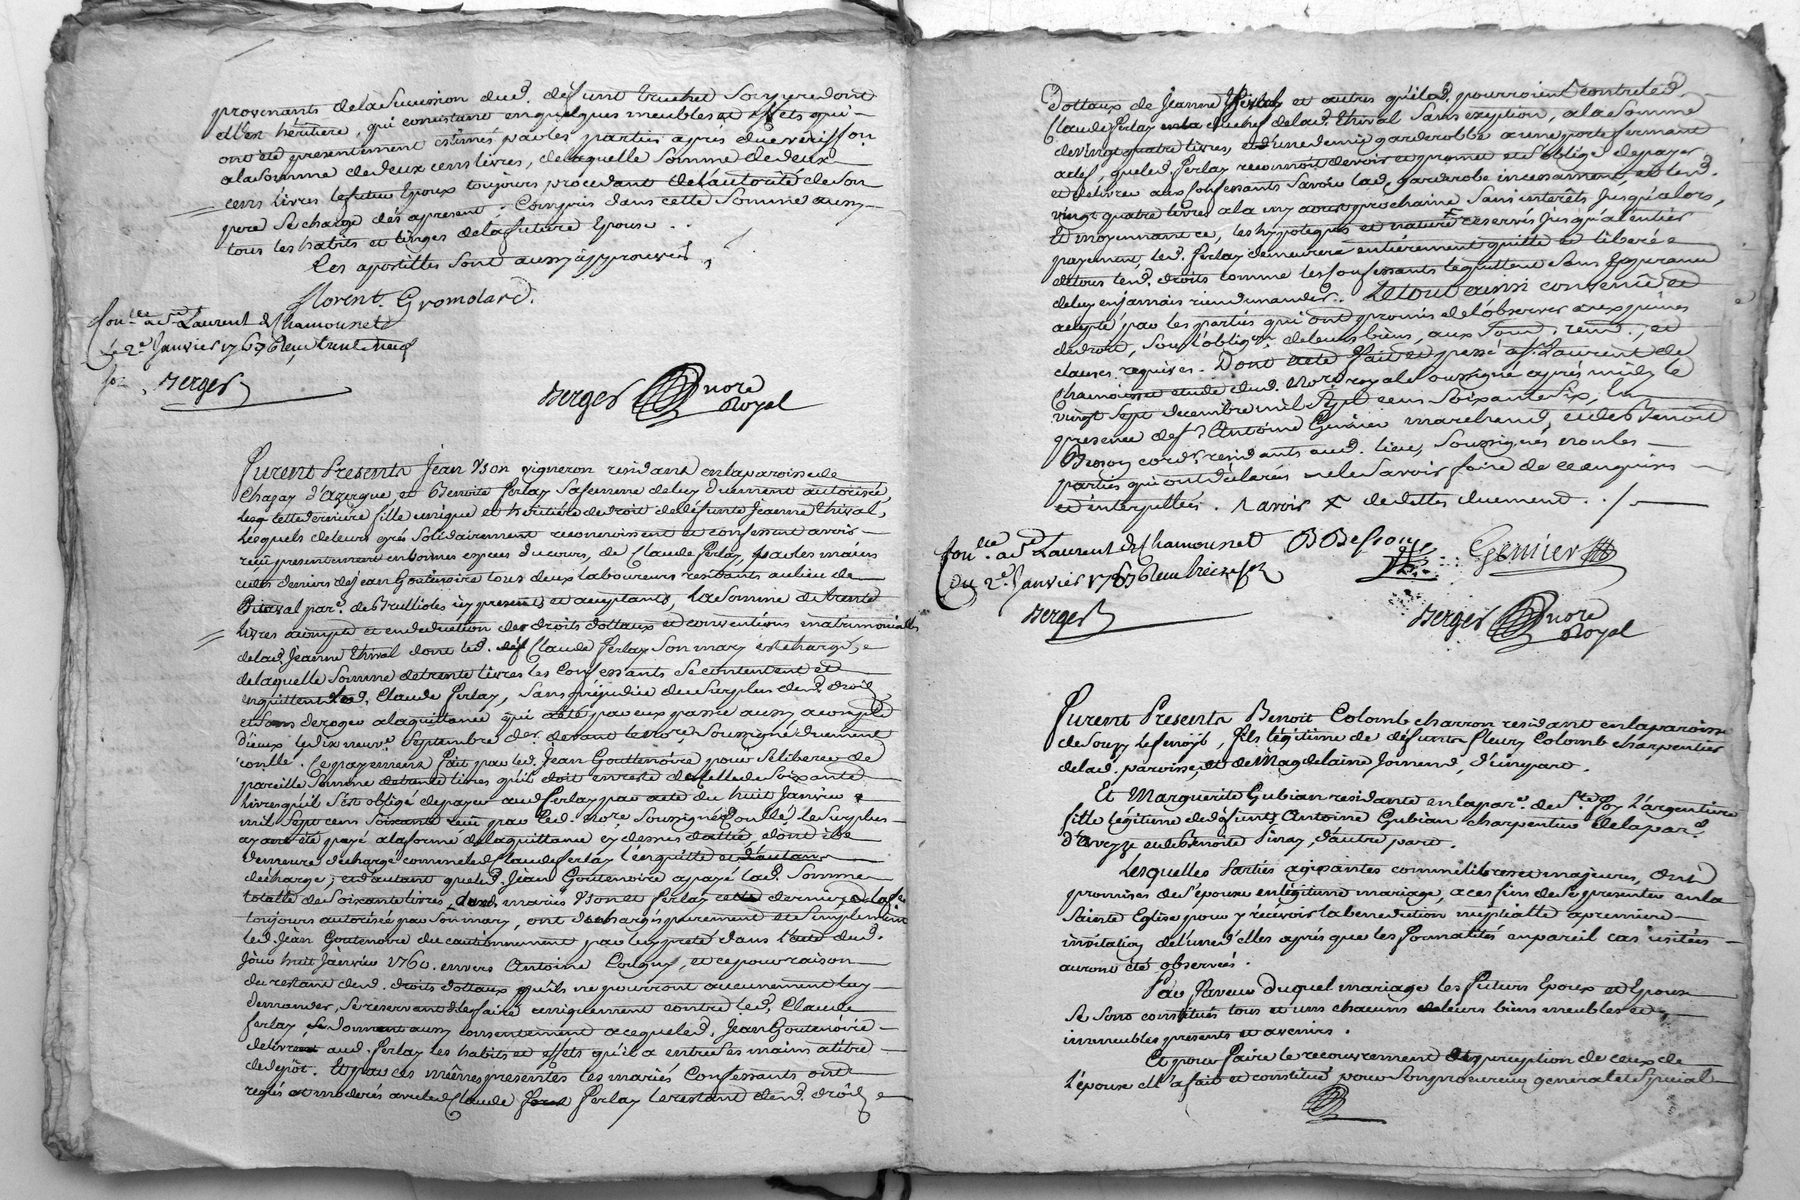 provenants de la Succession dud. deffunt truchet Son pere dont
elle est héritiere, qui consistent en quelques meubles et effets qui
ont été presentement estimés par les parties après due vériffon.
a la Somme de deux cens livres, de laquelle Somme de deux
cens livres le futur Epoux toujours procédant de l'autorité de Son
pere Se charge dès apresent. Compris dans cette Somme aussy
tous les habits et linges de la future Epouse.
les apostilles Sont aussy approuvés
florent. Gromolard.
Con.lle a St Laurent de Chamousset
le 2e. Janvier 1767
Berger
Berger nore
Royal
Furent Presents Jean yson vigneron residant en la paroisse de
Chazay d'Azergue, et Benoite ferlay Sa femme de luy duement autorisée,
lad. cette dernière fille unique et héritière de droit de déffunte Jeanne thival,
Lesquels de leurs grés Solidairement reconnoissent et confessent avoir
reçu presentement en bonnes especes du cours, de Claude ferlay, par les mains
et des deniers de Jean Goutenoire tous deux Laboureurs residants au lieu de
Pitaval par. de Brullioles icy presents et acceptants, La Somme de trente
livres acompte et en deduction des droits dottaux et conventions matrimonialles
de lad. Jeanne thival dont led. Claude ferlay Son mary est chargé,
de laquelle Somme de trente livres les Confessants Se contentent et
en quittent led. Claude ferlay, Sans préjudice du Surplus desd. droits
et Sans deroger a la quittance qui a été par eux passée aussy acompte
d'iceux le dix neuv. Septembre der. devant le nore. Soussigné duement
conllé. Ce payement fait par led. Jean Gouttenoire pour Se liberer de
pareille Somme de trente livres qu'il doit en reste de celle de Soixante
livres qu'il s'est obligé de payer aud. ferlay par acte du huit Janvier
mil Sept cens Soixante reçu par led. nore Soussigné conllé le Surplus
ayant été payé a la forme de la quittance cy dessus dattée, dont il
demeure déchargé comme led. Claude ferlay l'en quitte et
décharge; et d'autant que led. Jean Goutenoire a payé lad. Somme
totalle de Soixante livres, lesd. mariés yson et ferlay cette dernière
toujours autorisée par Son mary, ont déchargé purement et Simplement
led. Jean Goutenoire du cautionnement par luy preté dans l'acte dud.
jour huit Janvier 1760. envers Antoine Coigny, et ce pour raison
du restant desd. droits dottaux qu'ils ne pourront aucunement luy
demander, Se reservant de le faire uniquement contre led. Claude
ferlay, Se donnent aussy consentement a ce que led. Jean Goutenoire
délivre aud. ferlay les habits et effets qu'il a entre Ses mains a titre
de depôt. Et par ces mêmes presentes les mariés Confessants ont
reglés et moderés avec led. Claude ferlay le restant desd. droits
dottaux de Jeanne thival et autres qu'ils pourroient contre led.
Claude ferlay du chef de lad. thival Sans exeption, a la Somme
de vingt quatre livres, et d'une demie garderobbe a une porte fermant
a clef, que led. ferlay reconnoit devoir et promet et s'oblige de payer
et delivrer aux Confessants Savoir lad. garderobe incessament, et lesd.
vingt quatre livres a la my aoust prochaine Sans intérêts jusqu'alors,
Et moyennant ce, les hypoteques et nature reservés jusqu'al'entier
payement led. ferlay demeurera entièrement quitte et liberé
de tous lesd. droits comme les Confessants le quittent Sans Esperance
de luy en jamais rien demander. Le tout ainsi convenu et
accepté par les parties qui ont promis de l'observer aux peines
de droit, Sous l'obligon. de leurs biens, aux Soum. renon. et
clauses requises. Dont acte fait et passé a St. Laurent de
Chamousset etude dud. Nore. royal Soussigné après midy le
vingt Sept decembre mil Sept cens Soixante Six, En
presence de Sr. Antoine Grenier marchand, et de Benoit
Besson cordr. residants aud. lieu, Soussignés non les
parties qui ont déclarés ne le Savoir faire de ce enquises
et interpellées.
Con.lle a St Laurent de Chamousset
Du 2e. Janvier 1767
Berger
B Besson
Grenier
Berger nore
Royal
Furent Presents Benoit Colomb charron residant en la paroisse
de Souzy Fils légitime de déffunts fleury Colomb charpentier
de lad. paroisse, et de Magdelaine Joinend, d'une part.
Et Marguerite Gubian residante en la par. de Ste. foy l'argentiere
fille légitime de deffunts Antoine Gubian charpentier de la par.
d'aveyze et de Benoite Pinay, d'autre part.
Lesquelles Parties agissantes comme libres et majeures, ont
promises de s'épouser en légitime mariage, a ces fins de Se presenter en la
Sainte Eglise pour y recevoir la benediction nuptialle a premiere
invitation de l'une d'elles après que les formalités en pareil cas usitées
auront été observées.
En Faveur duquel mariage les futurs Epoux et Epouse
Se Sont constitués tous et uns chacuns leurs biens meubles et
immeubles presents et avenirs.
Et pour Faire le recouvrement et perception de ceux de
l'épouse elle a fait et constitué pour Son procureur general et Special